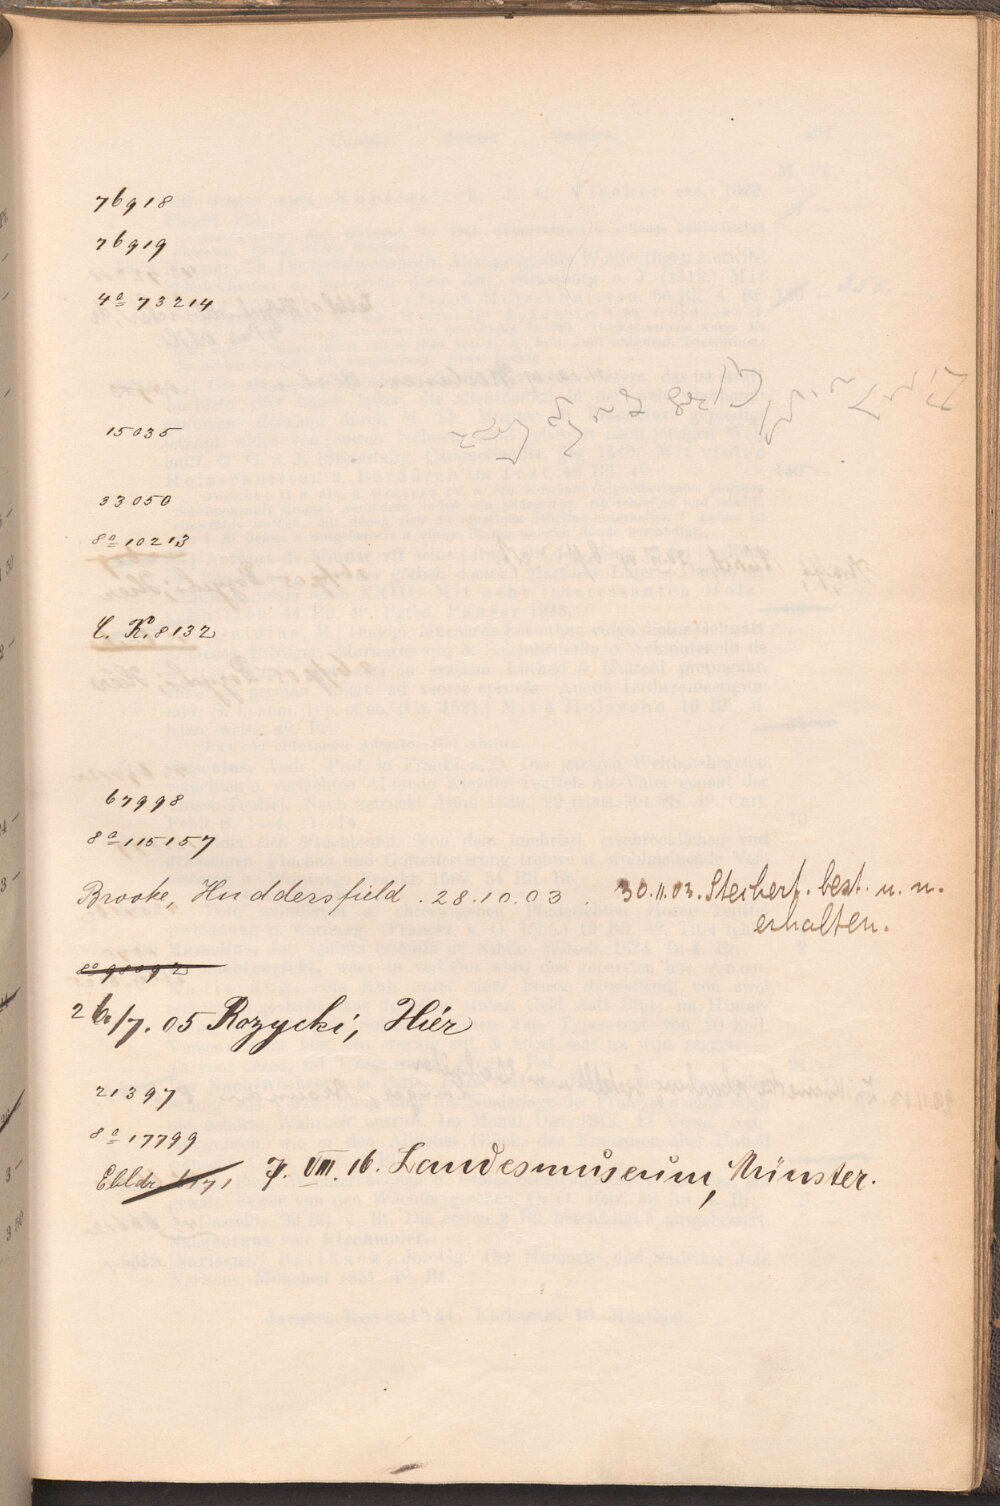 76918
76919
4º 73214
15035
33050
8º 10213
C. K. 8132
67998
8º 115157
Brooke, Huddersfield. 28.10.03. 30.11.03. Stechert. best. u. n.
erhalten.
8º 98092
26/7. 05 Rozycki, Hier
21397
8º 17799
7. VIII. 16. Landesmuseum, Münster.